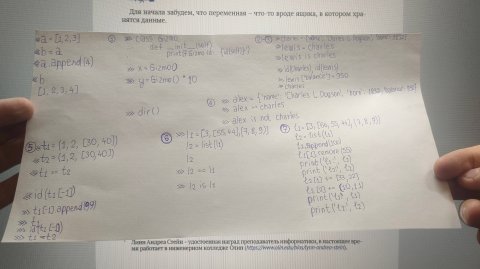 Для начала забудем, что переменная – что-то вроде ящика, в котором хра-
нятся данные.
a = [1,2,3]
b = a
a.append(4)
b
[1, 2, 3, 4]
class Gizmo:
def __init__(self):
print(f'Gizmo id: {id(self)}')
>> x = Gizmo()
>> y = Gizmo() * 10
>> dir()
lewis = charles
lewis is charles
id(charles), id(lewis)
lewis['balance'] = 950
charles
④ alex = {'name': 'Charles L. Dogson', 'born': 1832,
alex == charles
alex is not charles
⑤ t1 = (1, 2, [30, 40])
t2 = (1, 2, [30, 40])
t1 == t2
id(t1[-1])
t1[-1].append(99)
t1
id(t1[-1])
t1 == t2
⑥ >> l1 = [3, [55, 44], (7, 8, 9)]
l2 = list(l1)
l2
>> l2 == l1
>> l2 is l1
⑦ l1 = [3, [66, 55, 44], (7, 8, 9)]
l2 = list(l1)
l1.append(100)
l1[1].remove(55)
print('l1', l1)
print('l2', l2)
l2[1] += [33, 22]
l2[2] += (10, 11)
print('l1', l1)
print('l2', l2)
Линн Андреа Стейн – удостоенная наград преподаватель информатики, в настоящее вре-
мя работает в инженерном колледже Олин (https://www.olin.edu/bios/lynn-andrea-stein).